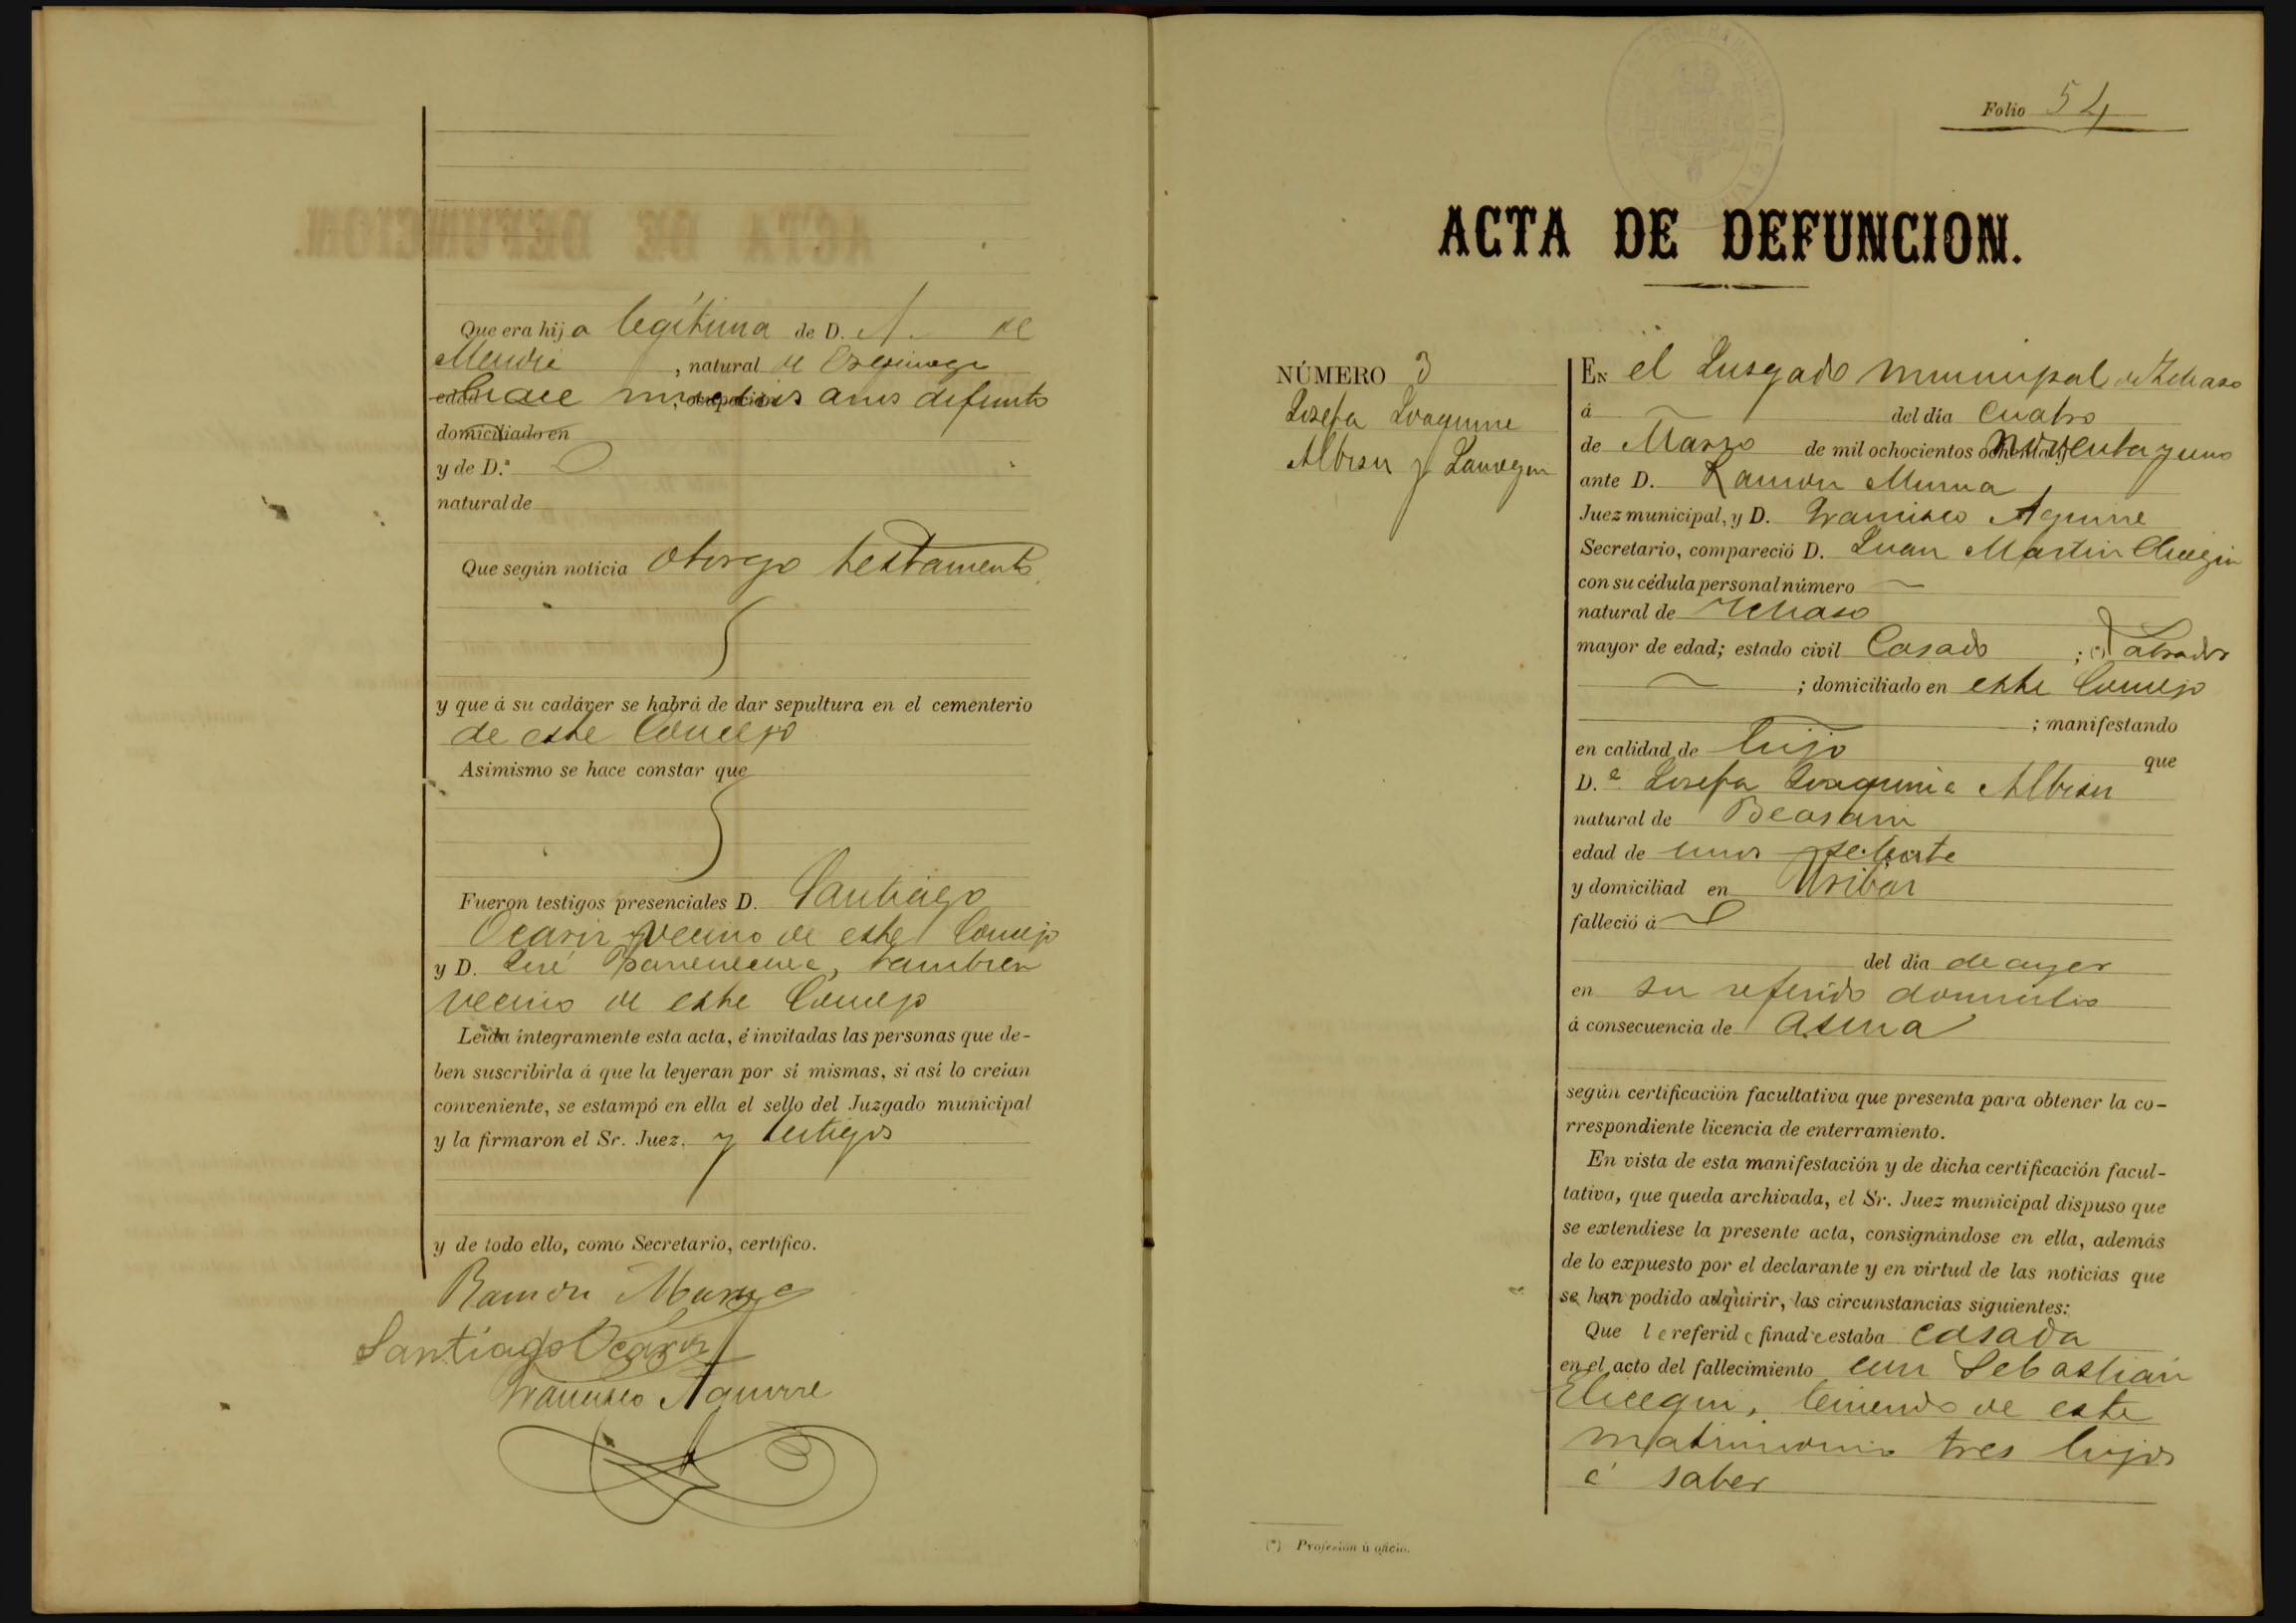 Que era hija legítima de D. N. de
, natural de
edad hace muchos años difunto
domiciliado en
y de D.ª
natural de
Que según noticia otorgo testamento
y que á su cadáver se habrá de dar sepultura en el cementerio
de este Concejo
Asimismo se hace constar que
Fueron testigos presenciales D. Santiago
Ocariz vecino de este Concejo
y D. José, tambien
vecino de este Concejo
Leida íntegramente esta acta, é invitadas las personas que de-
ben suscribirla á que la leyeran por sí mismas, si así lo creían
conveniente, se estampó en ella el sello del Juzgado municipal
y la firmaron el Sr. Juez. y testigos
y de todo ello, como Secretario, certifico.
Ramon Munua
Santiago Ocariz
Francisco Aguirre
Folio 54
ACTA DE DEFUNCION.
NÚMERO 3
Josefa Joaquina
Albisu y
EN el Jusgado municipal de
á del día cuatro
de Marzo de mil ochocientos noventa y uno
ante D. Ramon Munua
Juez municipal, y D. Francisco Aguirre
Secretario, compareció D. Juan Martin Elicegui
con su cédula personal número
natural de
mayor de edad; estado civil Casado ; (*) Labrador
; domiciliado en este Concejo
; manifestando
en calidad de hijo que
D.ª Josefa Joaquina Albisu
natural de Beasain
edad de unos setenta
y domiciliad en Uribar
falleció á
del día de ayer
en su referido domicilio
á consecuencia de Asma
según certificación facultativa que presenta para obtener la co-
rrespondiente licencia de enterramiento.
En vista de esta manifestación y de dicha certificación facul-
tativa, que queda archivada, el Sr. Juez municipal dispuso que
se extendiese la presente acta, consignándose en ella, además
de lo expuesto por el declarante y en virtud de las noticias que
se han podido adquirir, las circunstancias siguientes:
Que l a referid a finad a estaba casada
en el acto del fallecimiento con Sebastian
Elicegui, teniendo de este
matrimonio tres hijos
á saber
(*) Profesión ú oficio.